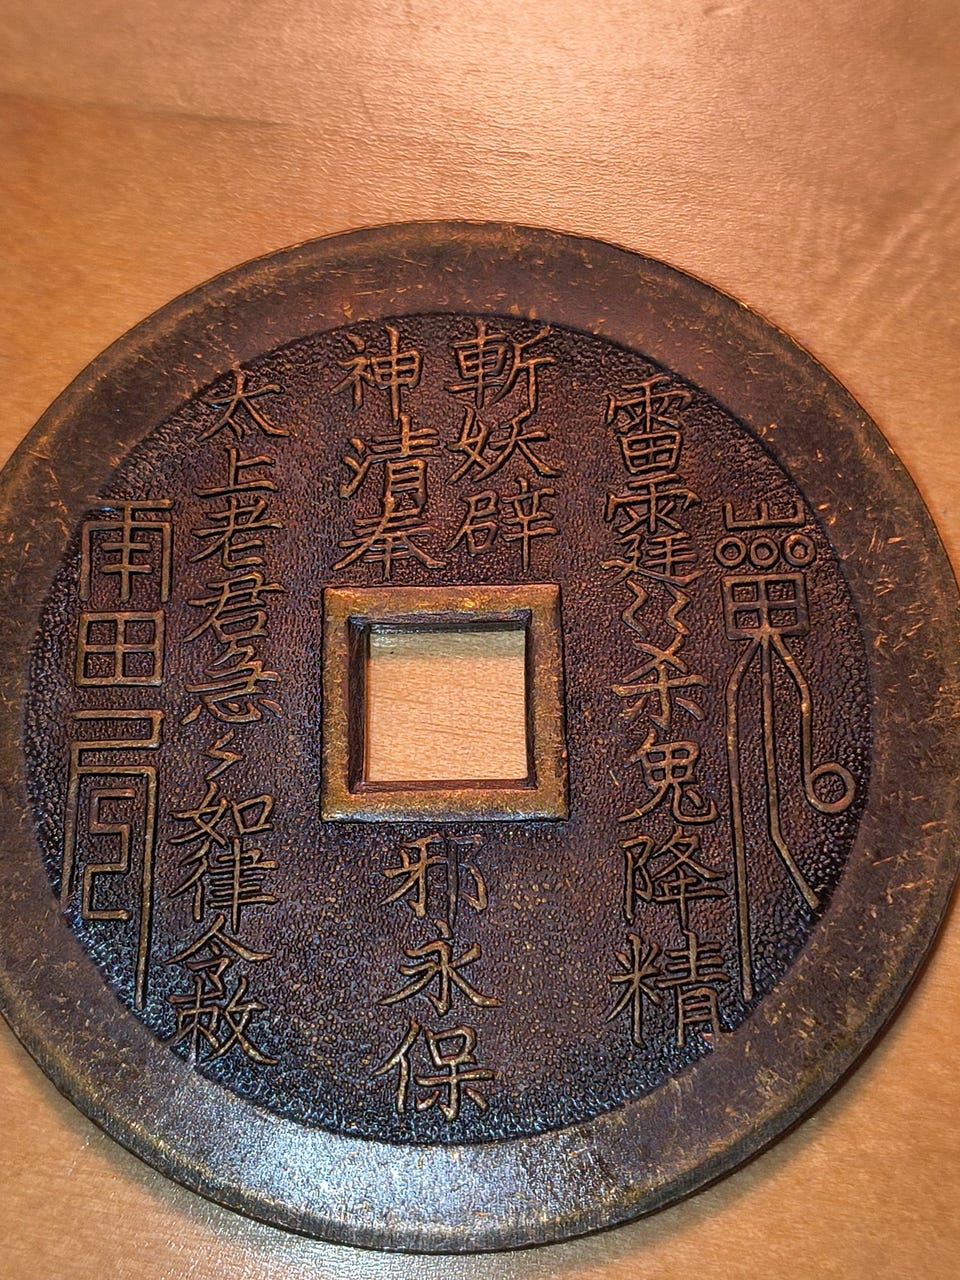 雷霆々々杀鬼降精
斬妖辟
邪永保
神清奉
太上老君急々如律令敕